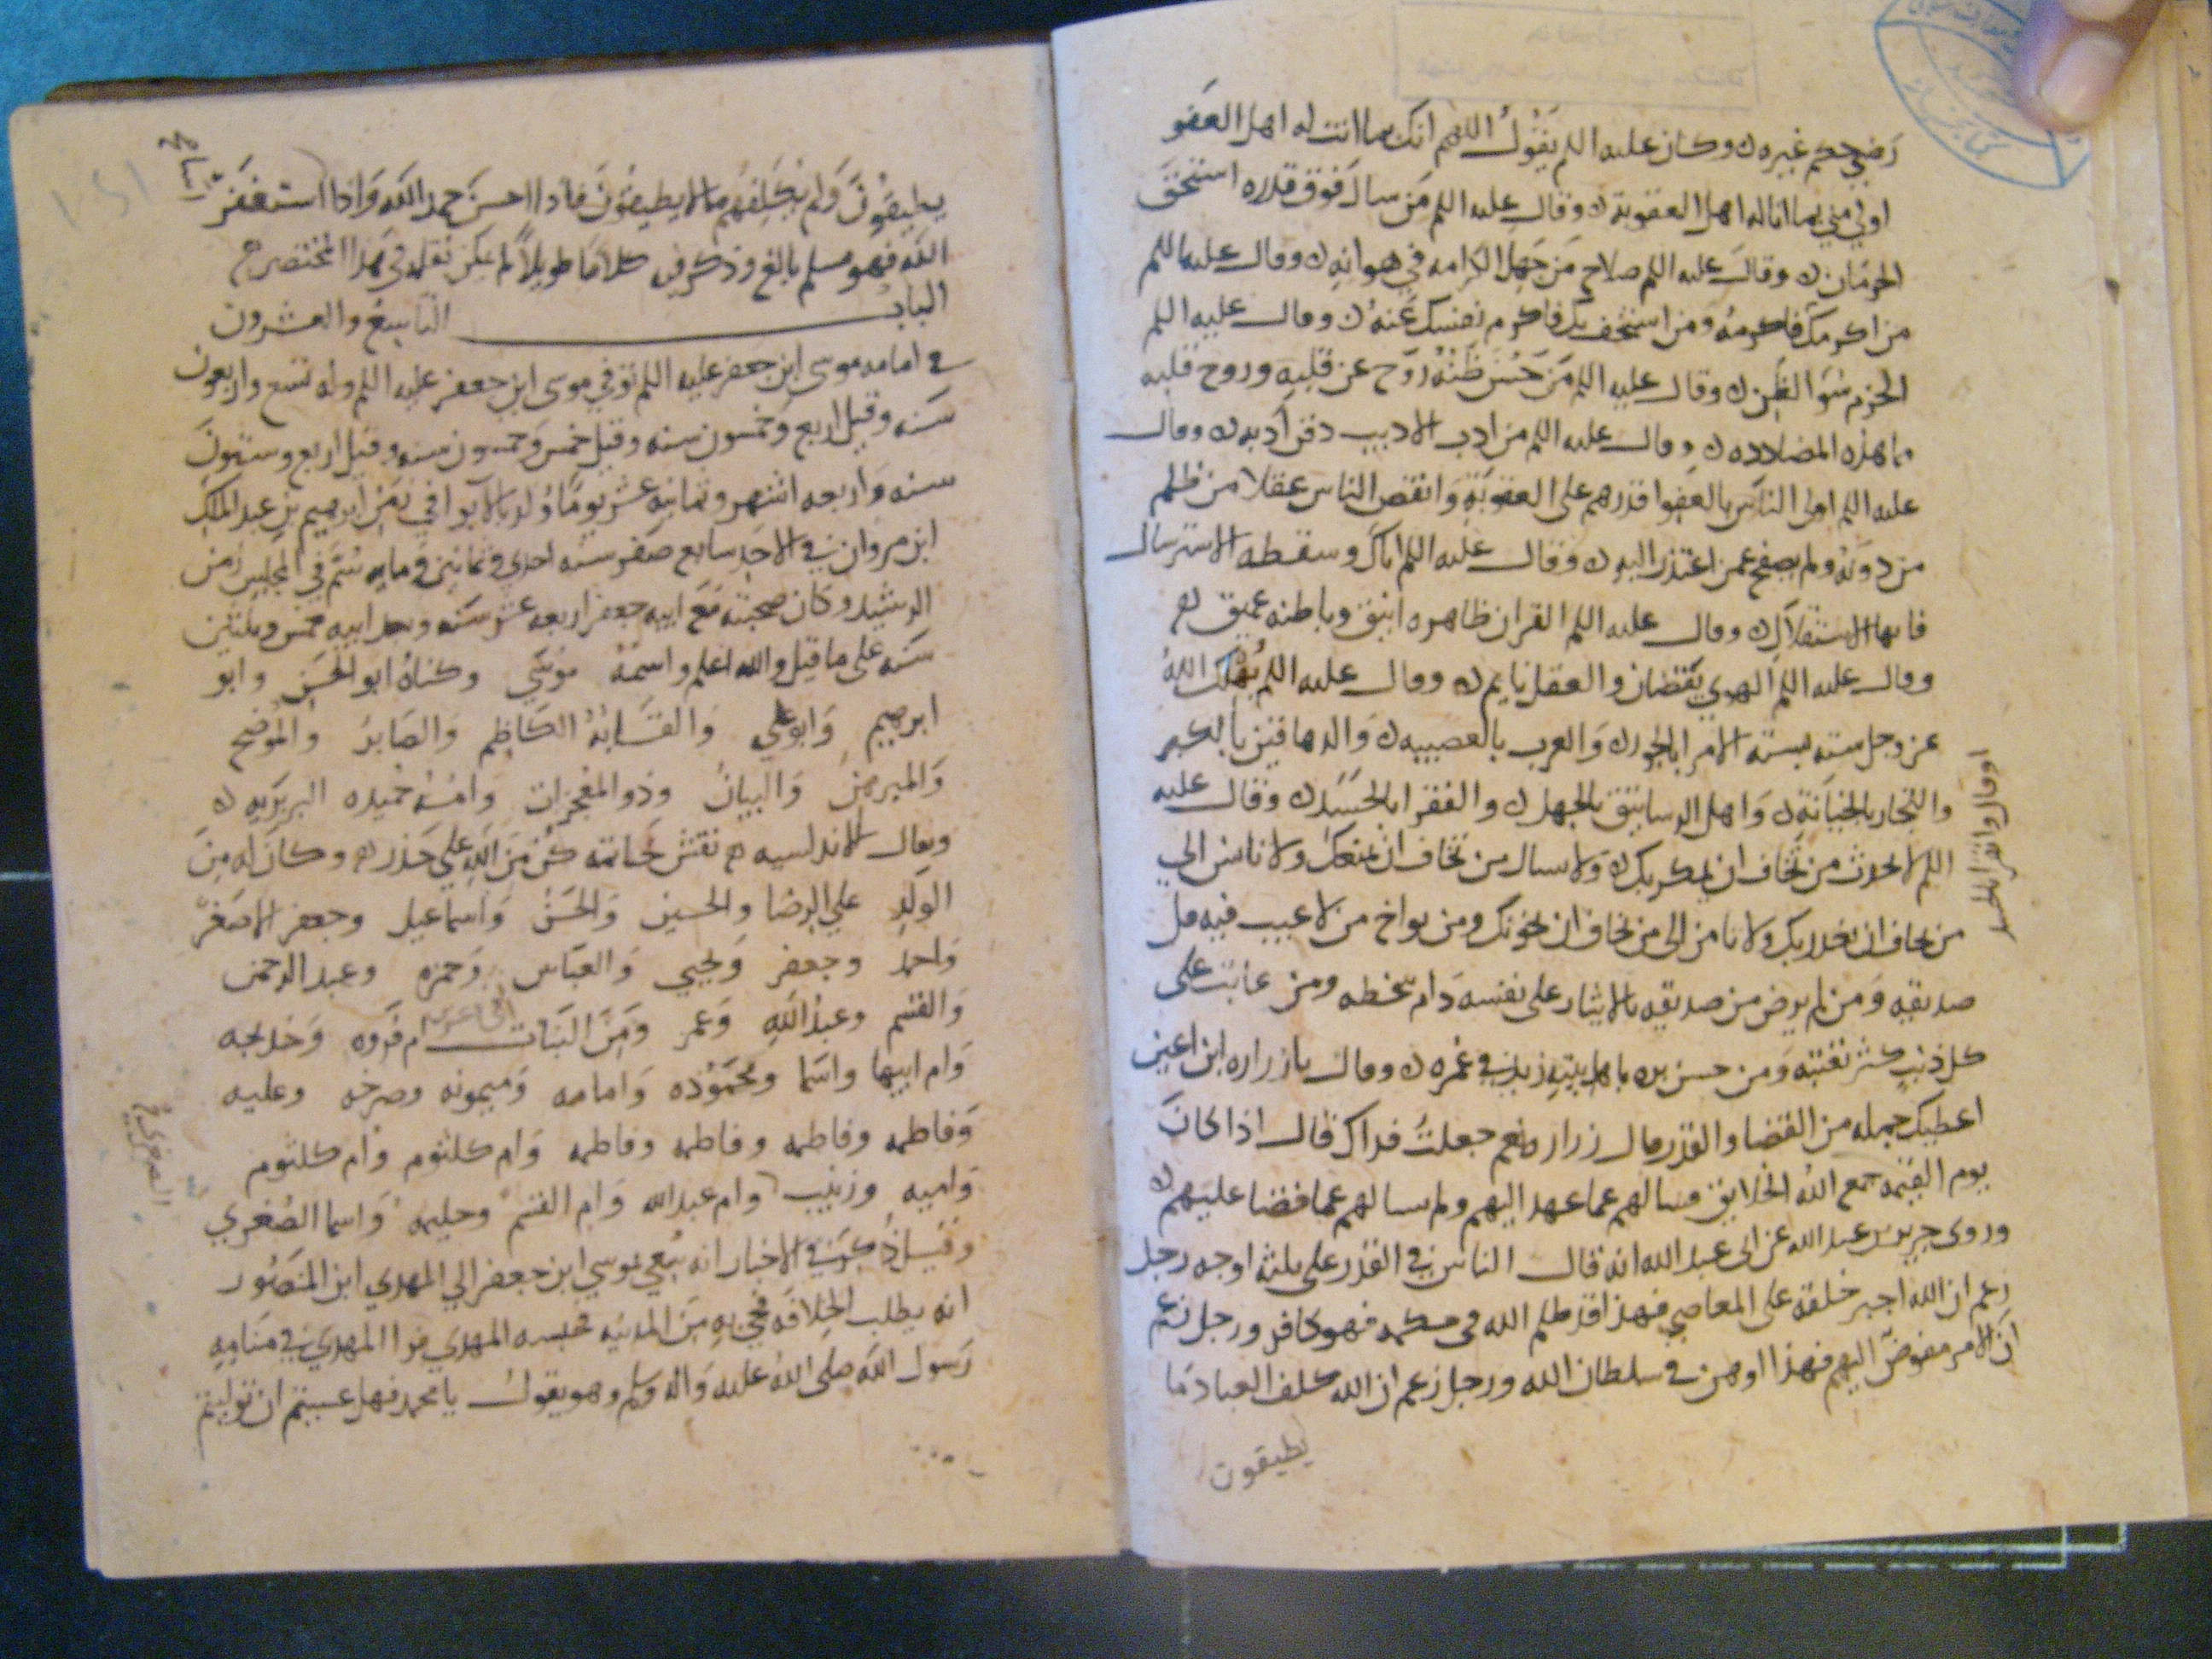 رضي حكم غيره ن وكان عليه السلم يقول اللهم انك بما انت له اهل العفو
اولى مني بما انا له اهل العقوبة ن وقال عليه السلم من سال فوق قدره استحق
الحرمان ن وقال عليه السلم صلاح من جهل الكرامه في هوانه ن وقال عليه السلم
من اكرمك فاكرمه ومن استخف بك فاكرم نفسك عنه ن وقال عليه السلم
الحزم سو الظن ن وقال عليه السلم من حسن ظنه روح عن قلبه وروح قلبه
ما هذه المضلاده ن وقال عليه السلم من ادب الاديب دفن ادبه ن وقال
عليه السلم اولى الناس بالعفو اقدرهم على العقوبة وانقص الناس عقلا من ظلم
من دونه ولم يصفح عمن اعتذر اليه ن وقال عليه السلم اياك وسقطه الاسترسال
فانها لا تستقال ن وقال عليه السلم القران ظاهره انيق وباطنه عميق
وقال عليه السلم الهوي يقضان والعقل نايم ن وقال عليه السلم يهلك الله
عز وجل سته بسته الامرا بالجور ن والعرب بالعصبيه ن والدهاقين بالكبر
والتجار بالخيانة ن واهل الرساتيق بالجهل ن والفقرا بالحسد ن وقال عليه
السلم لا تحدث من تخاف ان يكذبك ن ولا تسال من تخاف ان يمنعك ولا تامن الي
من تخاف ان يغدر بك ولا تامن الى من تخاف ان يخونك ومن يواخ من لا عيب فيه قل
صديقه ومن لم يرض من صديقه بالايثار على نفسه دام سخطه ومن عاتب على
كل ذنب كثر تعتبه ومن حسن بره باهل بيته زيد في عمره ن وقال يا زراره ابن اعين
اعطيك جمله من القضا والقدر قال زراره نعم جعلت فداك قال اذا كان
يوم القيمة جمع الله الخلايق فسالهم عما عهد اليهم ولم يسالهم عما قضا عليهم ن
وروى حريز بن عبد الله عن ابى عبد الله انه قال الناس في القدر على ثلثه اوجه رجل
زعم ان الله اجبر خلقه على المعاصي فهذا قد ظلم الله فى حكمه فهو كافر ورجل زعم
ان الامر مفوض اليهم فهذا اوهن في سلطان الله ورجل زعم ان الله كلف العباد ما
يطيقون
يطيقون ولم يكلفهم ما لا يطيقون فاذا احسن حمد الله واذا استغفر
الله فهو مسلم بالغ وذكر في كلاما طويلا لم يمكن نقله في هذا المختصر
الباب التاسع والعشرون
في امامه موسى ابن جعفر عليه السلم توفي موسى ابن جعفر عليه السلم وله تسع واربعون
سنه وقيل اربع وخمسون سنه وقيل خمس وخمسون سنه وقيل اربع وستون
سنه واربعه اشهر وثمانيه عشر يوما ولد بالابوا في زمن ابرهيم بن عبد الملك
ابن مروان في الاحد سابع صفر سنه احدى وثمانين ومايه سم في الحبس زمن
الرشيد وكان صحبته مع ابيه جعفر اربعه عشر سنه وبعد ابيه خمس وثلثين
سنه على ما قيل والله اعلم واسمه موسي وكناه ابو الحسن وابو
ابرهيم وابو علي والقابه الكاظم والصابر والموضح
والمبرهن والبيان وذو المعجزات وامه حميده البربريه ن
ويقال الاندلسيه نقش خاتمه كن من الله على حذر وكان له من
الولد علي الرضا والحسين والحسن واسماعيل وجعفر الاصغر
واحمد وجعفر ويحيي والعباس وحمزه وعبد الرحمن
والقسم وعبد الله وعمر ومن البنات ام فروه وخديجه
وام ابيها واسما ومحموده وامامه وميمونه وصرخه وعليه
وفاطمه وفاطمه وفاطمه وفاطمه وام كلثوم وام كلثوم
وامينه وزينب وام عبد الله وام القسم وحليمه واسما الصغري
وقيل ذكر في الاخبار انه سعي بموسي ابن جعفر الي المهدي ابن المنصور
انه يطلب الخلافه فجي به من المدينه فحبسه المهدي فرا المهدي في منامه
رسول الله صلى الله عليه واله وسلم وهو يقول يا محمد فهل عسيتم ان توليتم